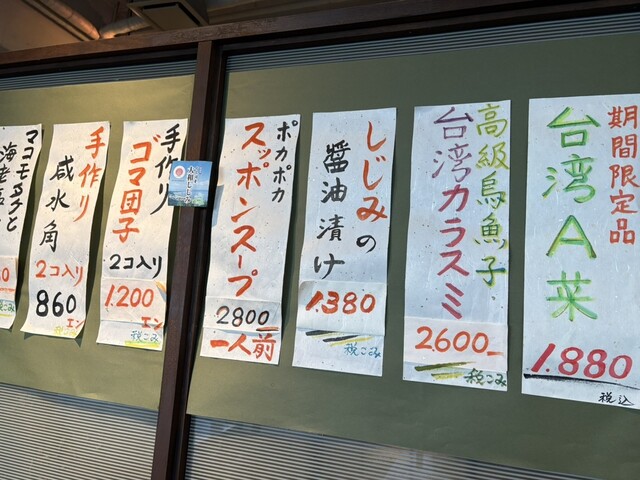 期間限定品
台湾A菜
1.880
税込
高級烏魚子
台湾カラスミ
2600
税こみ
しじみの
醤油漬け
1.380
税こみ
ポカポカ
スッポンスープ
2800
一人前
手作り
ゴマ団子
2コ入り
1.200
エン
税こみ
手作り
咸水角
2コ入り
860
エン
マコモダケと